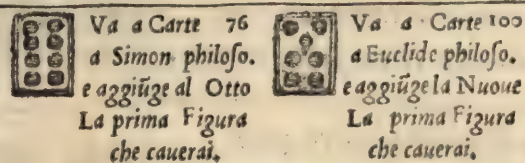 Va a Carte 76
a Simon philoſo.
e aggiũge al Otto
La prima Figura
che cauerai.
Va a Carte 100
a Euclide philoſo.
e aggiũge la Nuoue
La prima Figura
che cauerai.